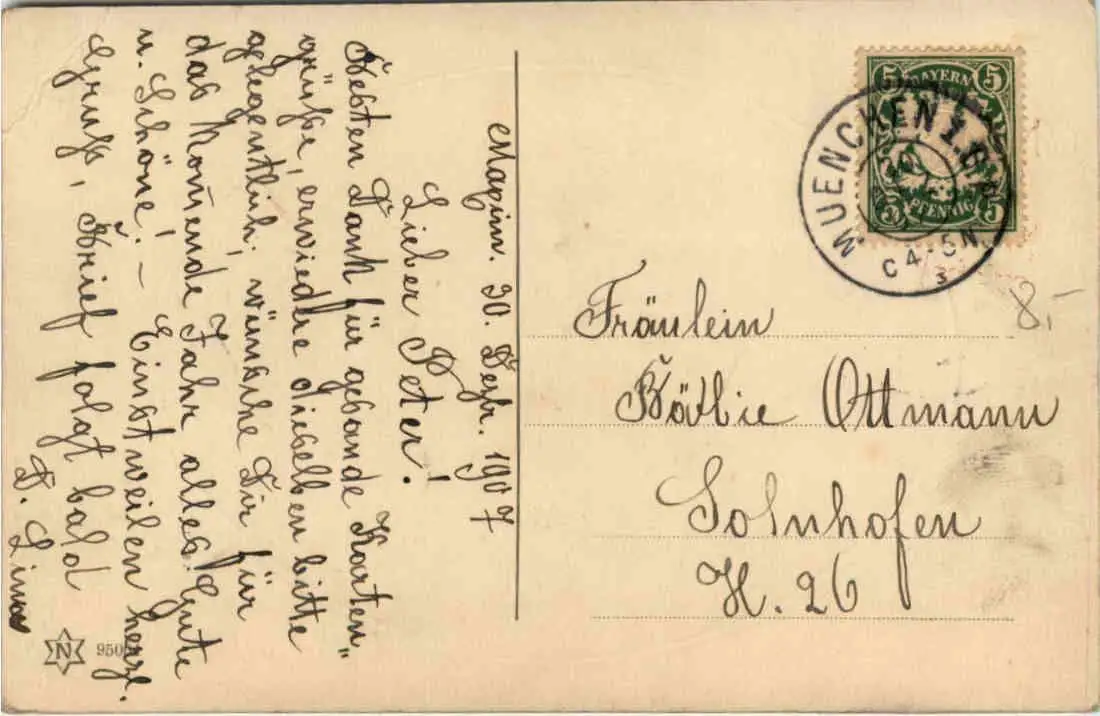 30. Dezbr. 1907
Lieber Peter!
Besten Dank für gesande Karten
grüße, erwiedere dieselben bitte
glegentlich; wünsche Dir für
das kommende Jahr alles Gute
u. Schöne! – Einstweilen herzl.
Gruß, Brief folgt bald
D. Lina
BAYERN
5 5
5 PFENNIG 5
MUENCHEN
C 4-5N
3
8.-
Fräulein
Ottmann
Solnhofen
H. 26
N 950